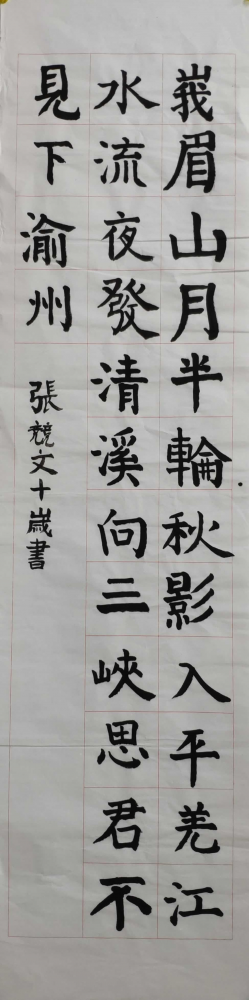 峩眉山月半輪秋影入平羌江
水流夜發清溪向三峽思君不
見下渝州
張競文十歲書